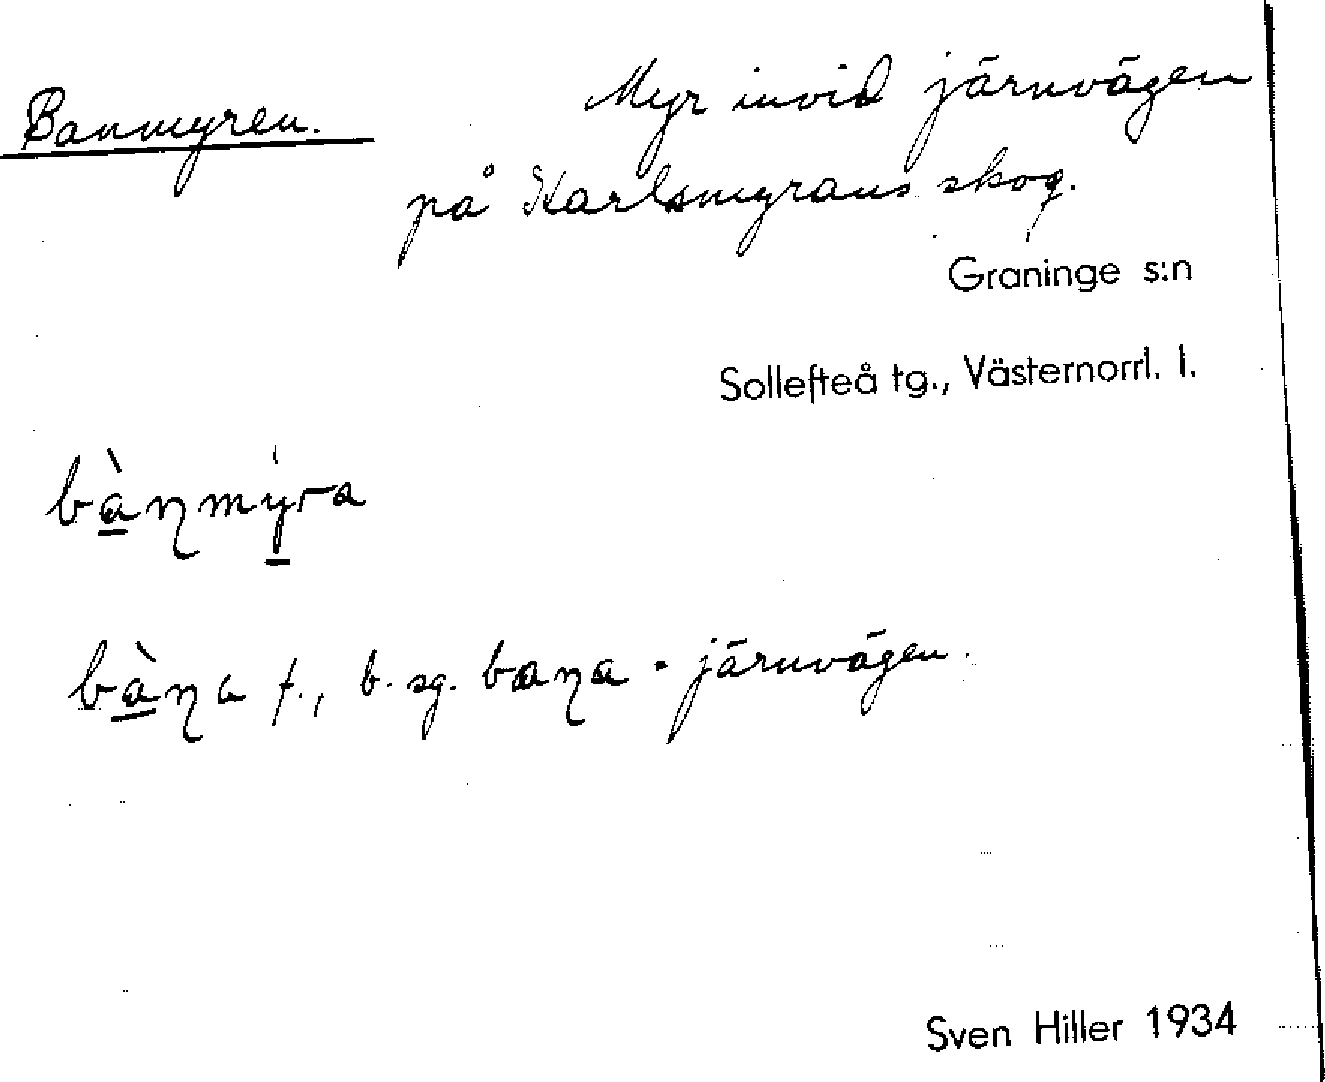 Banmyren. Myr invid järnvägen
på Karlsmyrans skog.
Graninge s:n
Sollefteå tg., Västernorrl. l.
bànmýra
bàna f., b. sg. bana = järnvägen.
Sven Hiller 1934